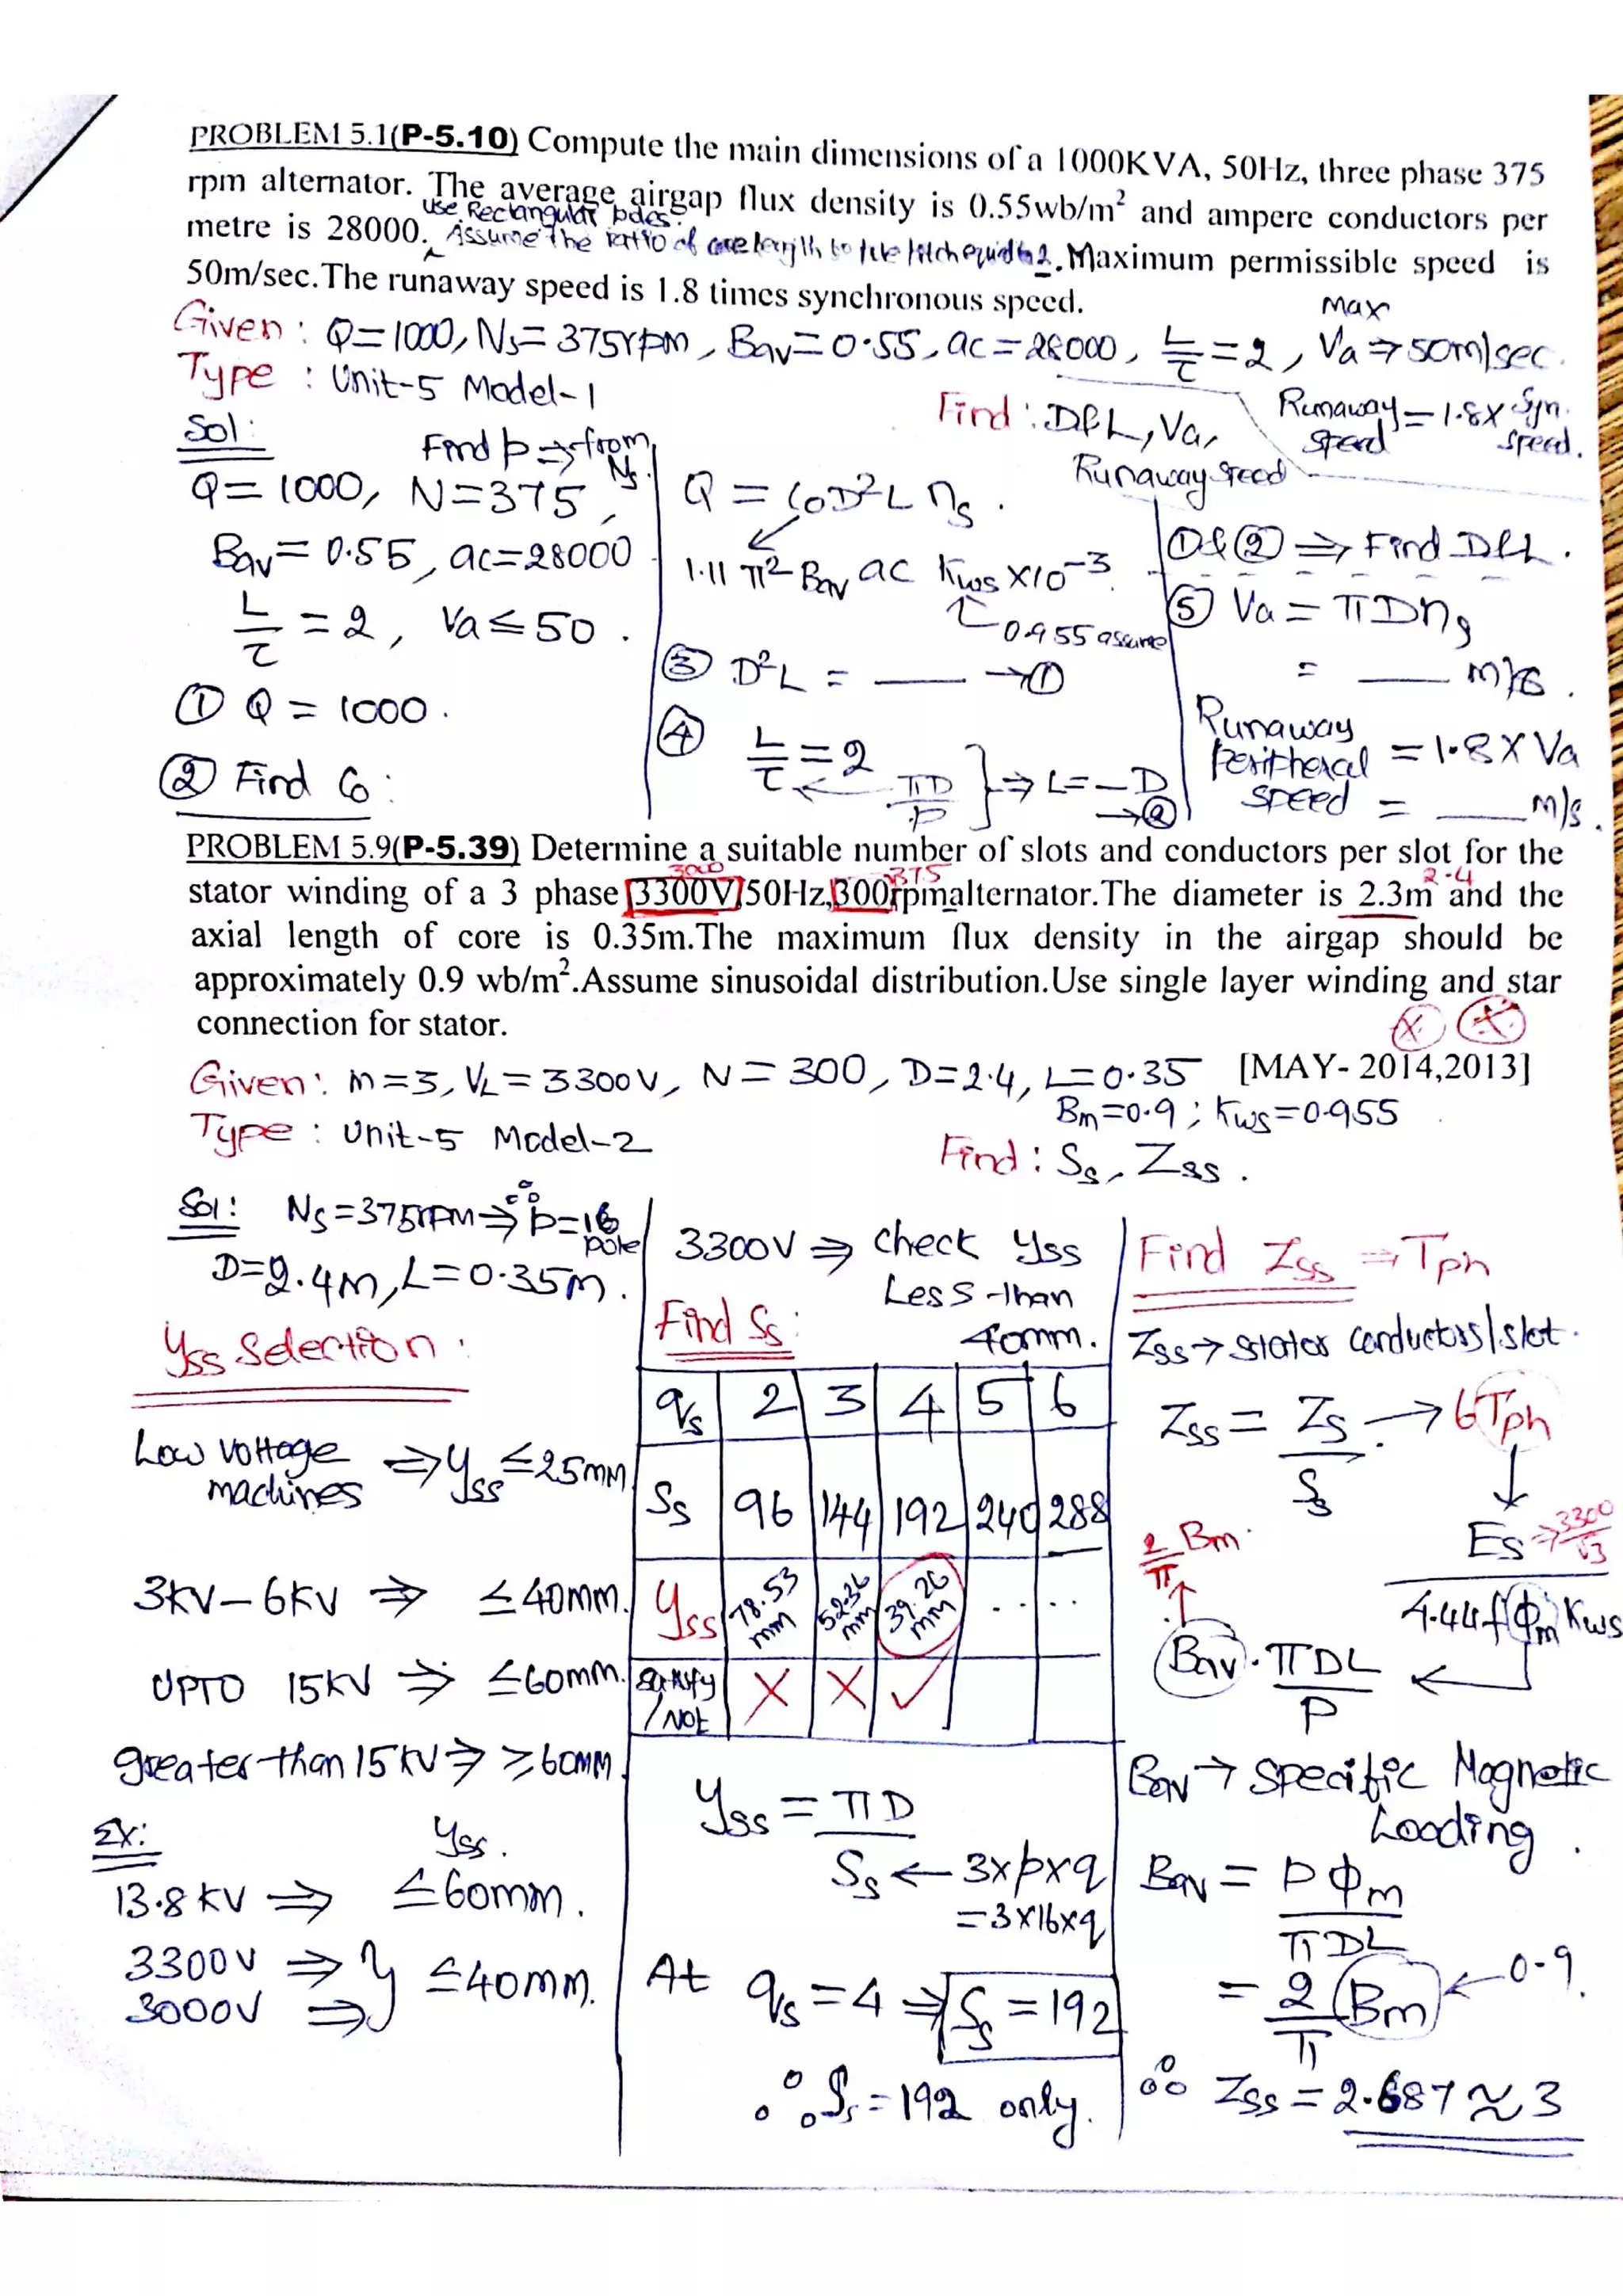 PROBLEM 5.1(P-5.10) Compute the main dimensions of a 1000KVA, 50Hz, three phase 375
rpm alternator. The average airgap flux density is 0.55wb/m² and ampere conductors per
use Rectangular poles.
metre is 28000. Assume the ratio of core length to pole pitch equal to 2. Maximum permissible speed is
50m/sec. The runaway speed is 1.8 times synchronous speed.
Given : Q=1000, Ns=375rpm, Bav=0.55, ac=28000, L/τ=2, Max Va⇒50m/sec.
Type : Unit-5 Model-1
Find : D&L, Va, Runaway speed
Runaway speed = 1.8× Syn. speed.
Sol:
Find p ⇒ from Ns.
Q=1000, N=375,
Bav=0.55, ac=28000
L/τ = 2, Va ≤ 50.
① Q = 1000.
② Find Co:
Q = CoD²L ns.
1.11 π² Bav ac Kws ×10⁻³
0.955 assume
③ D²L = ___ →①
④ L/τ = 2
πD/p } ⇒ L = — D →②
①&② ⇒ Find D&L.
⑤ Va = πDns
= ___ m/s.
Runaway Peripheral speed = 1.8 × Va
= ___ m/s.
PROBLEM 5.9(P-5.39) Determine a suitable number of slots and conductors per slot for the
3000 375 2.4
stator winding of a 3 phase 3300V,50Hz,300rpmalternator.The diameter is 2.3m and the
axial length of core is 0.35m.The maximum flux density in the airgap should be
approximately 0.9 wb/m².Assume sinusoidal distribution.Use single layer winding and star
connection for stator.
Given : m=3, VL=3300V, N=300, D=2.4, L=0.35 [MAY- 2014,2013]
Bm=0.9 ; Kws=0.955
Type : Unit-5 Model-2
Find : Ss, Zss.
Sol: Ns=375rpm ⇒ ∴ p=16 pole
D=2.4m, L=0.35m.
Yss Selection :
Low voltage machines ⇒ Yss ≤25mm
3KV–6KV ⇒ ≤40mm.
UPTO 15KV ⇒ ≤60mm.
greater than 15KV ⇒ ≥60mm.
Ex: Yss.
13.8 KV ⇒ ≤60mm.
3300V ⇒
3000V ⇒ } ≤40mm.
3300V ⇒ check Yss
Less than
40mm.
Find Ss:
qs 2 3 4 5 6
Ss 96 144 192 240 288
Yss 78.53 mm 52.36 mm 39.26 mm .. ..
Satisfy / Not × × ✓
Yss = πD / Ss ← 3×p×q
=3×16×q
At qs=4 ⇒ Ss=192
∴ Ss=192 only.
Find Zss ⇒ Tph
Zss → stator conductors/slot.
Zss = Zs / Ss → 6Tph
Es ⇒ 3300/√3
4.44 f Φm Kws
2/π Bm.
Bav . πDL / P ←
Bav → Specific Magnetic
Loading.
Bav = PΦm / πDL
= 2/π Bm ← 0.9.
∴ Zss = 2.687 ≈ 3